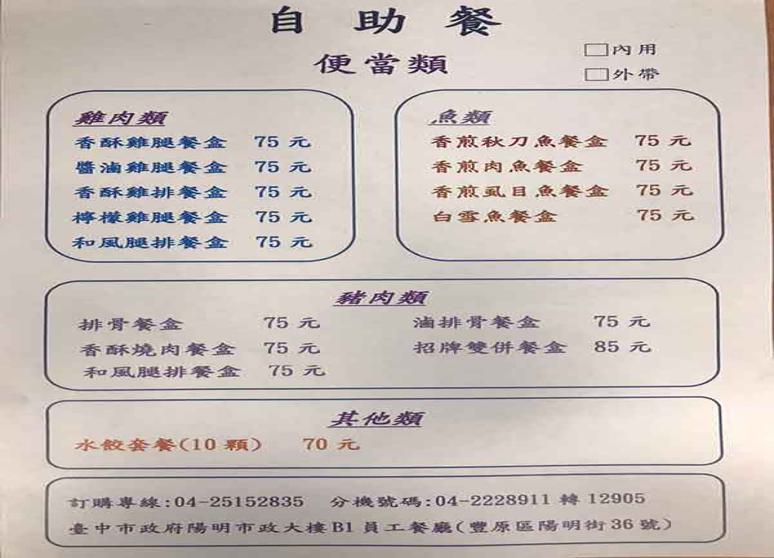 自助餐
便當類
□內用
□外帶
雞肉類
香酥雞腿餐盒 75 元
醬滷雞腿餐盒 75 元
香酥雞排餐盒 75 元
檸檬雞腿餐盒 75 元
和風腿排餐盒 75 元
魚類
香煎秋刀魚餐盒 75 元
香煎肉魚餐盒 75 元
香煎虱目魚餐盒 75 元
白雪魚餐盒 75 元
豬肉類
排骨餐盒 75 元 滷排骨餐盒 75 元
香酥燒肉餐盒 75 元 招牌雙併餐盒 85 元
和風腿排餐盒 75 元
其他類
水餃套餐(10 顆) 70 元
訂購專線:04-25152835 分機號碼:04-2228911 轉 12905
臺中市政府陽明市政大樓 B1 員工餐廳(豐原區陽明街 36 號)